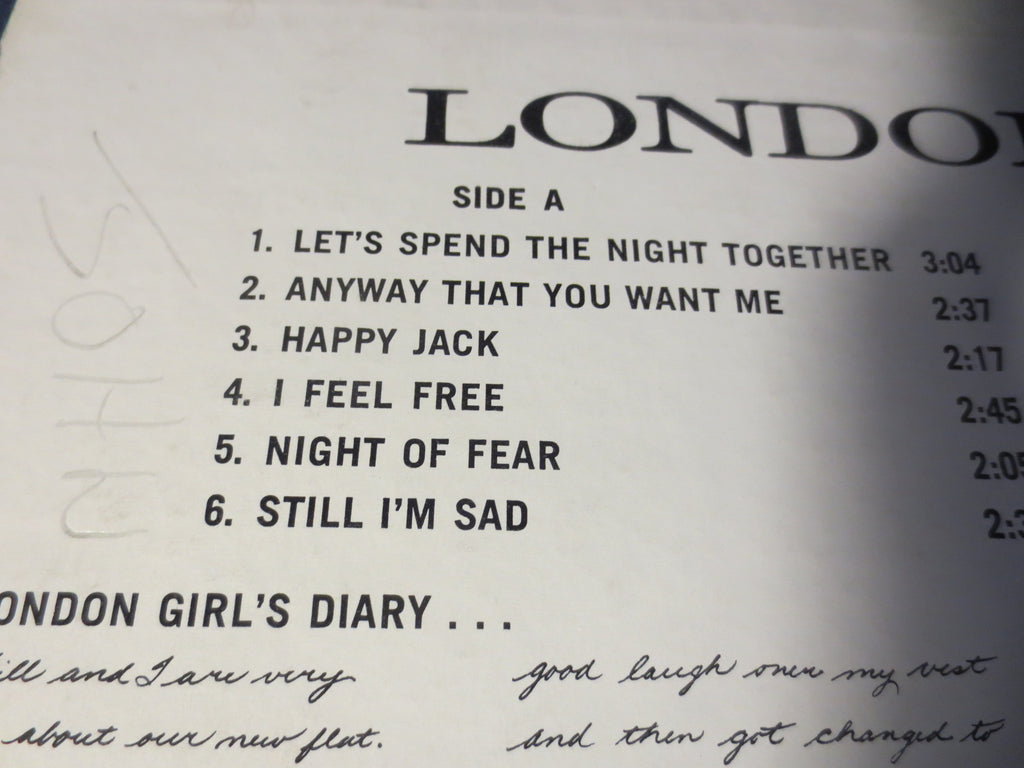 LONDO
SIDE A
1. LET'S SPEND THE NIGHT TOGETHER 3:04
2. ANYWAY THAT YOU WANT ME 2:37
3. HAPPY JACK 2:17
4. I FEEL FREE 2:45
5. NIGHT OF FEAR 2:05
6. STILL I'M SAD 2:3
ONDON GIRL'S DIARY . . .
ill and I are very
about our new flat.
good laugh over my vest
and then got changed to